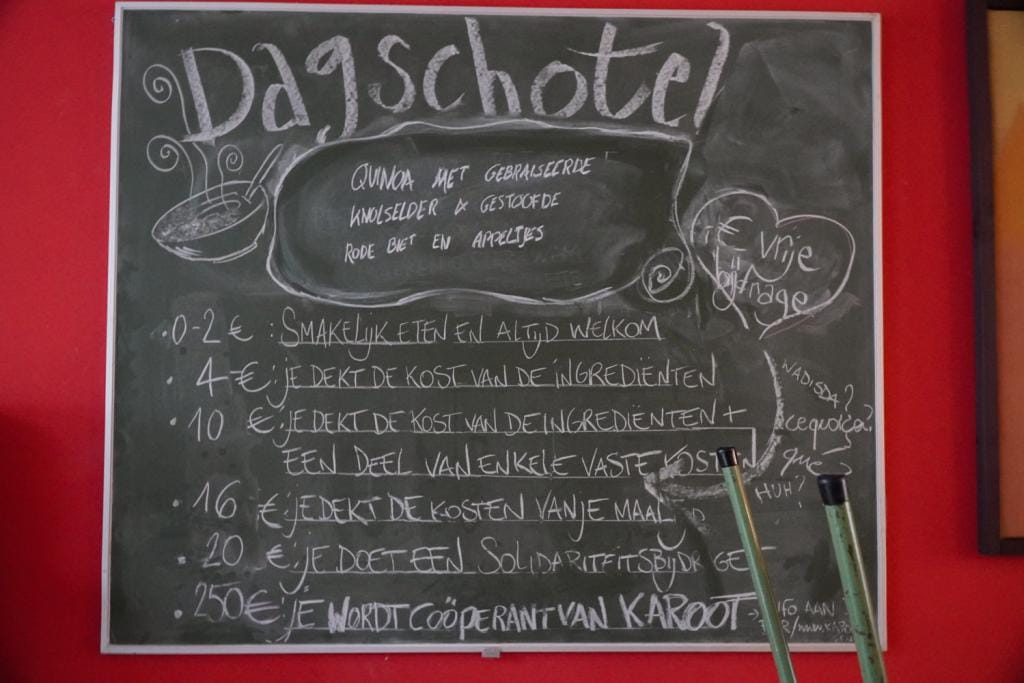 Dagschotel
QUINOA MET GEBRAISEERDE
KNOLSELDER & GESTOOFDE
RODE BIET EN APPELTJES
€ vrije
bijdrage
• 0-2 € : SMAKELIJK ETEN EN ALTIJD WELKOM
• 4 € : JE DEKT DE KOST VAN DE INGREDIËNTEN
• 10 € : JE DEKT DE KOST VAN DE INGREDIËNTEN +
EEN DEEL VAN ENKELE VASTE KOSTEN
• 16 € : JE DEKT DE KOSTEN VAN JE MAAL
• 20 € : JE DOET EEN SOLIDARITEITSBIJDR GE
• 250 € : JE WORDT COÖPERANT VAN KAROOT
WADISDA?
cequoica?
que?
HUH?
→ NFO AAN